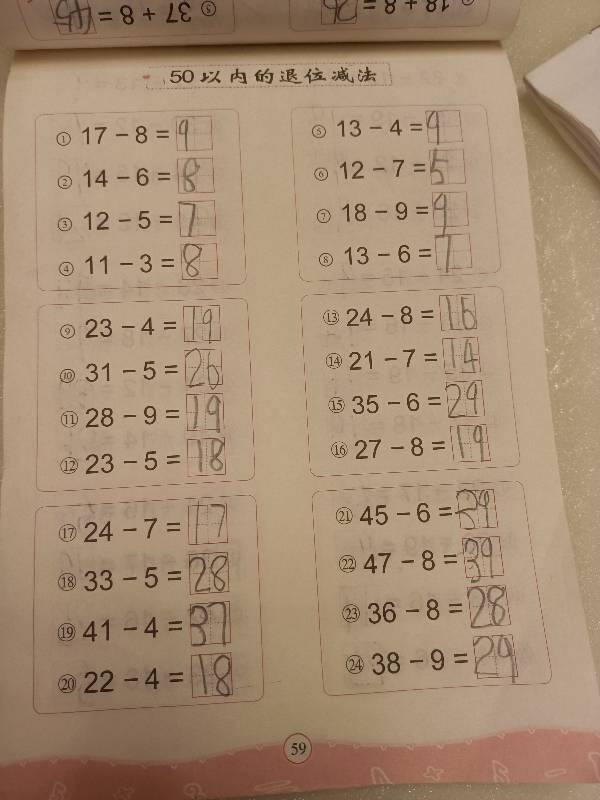 ⑤ 37 + 8 = 45
18 + 8 = 26
50以内的退位减法
① 17 − 8 = 9
② 14 − 6 = 8
③ 12 − 5 = 7
④ 11 − 3 = 8
⑤ 13 − 4 = 9
⑥ 12 − 7 = 5
⑦ 18 − 9 = 9
⑧ 13 − 6 = 7
⑨ 23 − 4 = 19
⑩ 31 − 5 = 26
⑪ 28 − 9 = 19
⑫ 23 − 5 = 18
⑬ 24 − 8 = 16
⑭ 21 − 7 = 14
⑮ 35 − 6 = 29
⑯ 27 − 8 = 19
⑰ 24 − 7 = 17
⑱ 33 − 5 = 28
⑲ 41 − 4 = 37
⑳ 22 − 4 = 18
㉑ 45 − 6 = 39
㉒ 47 − 8 = 39
㉓ 36 − 8 = 28
㉔ 38 − 9 = 29
59